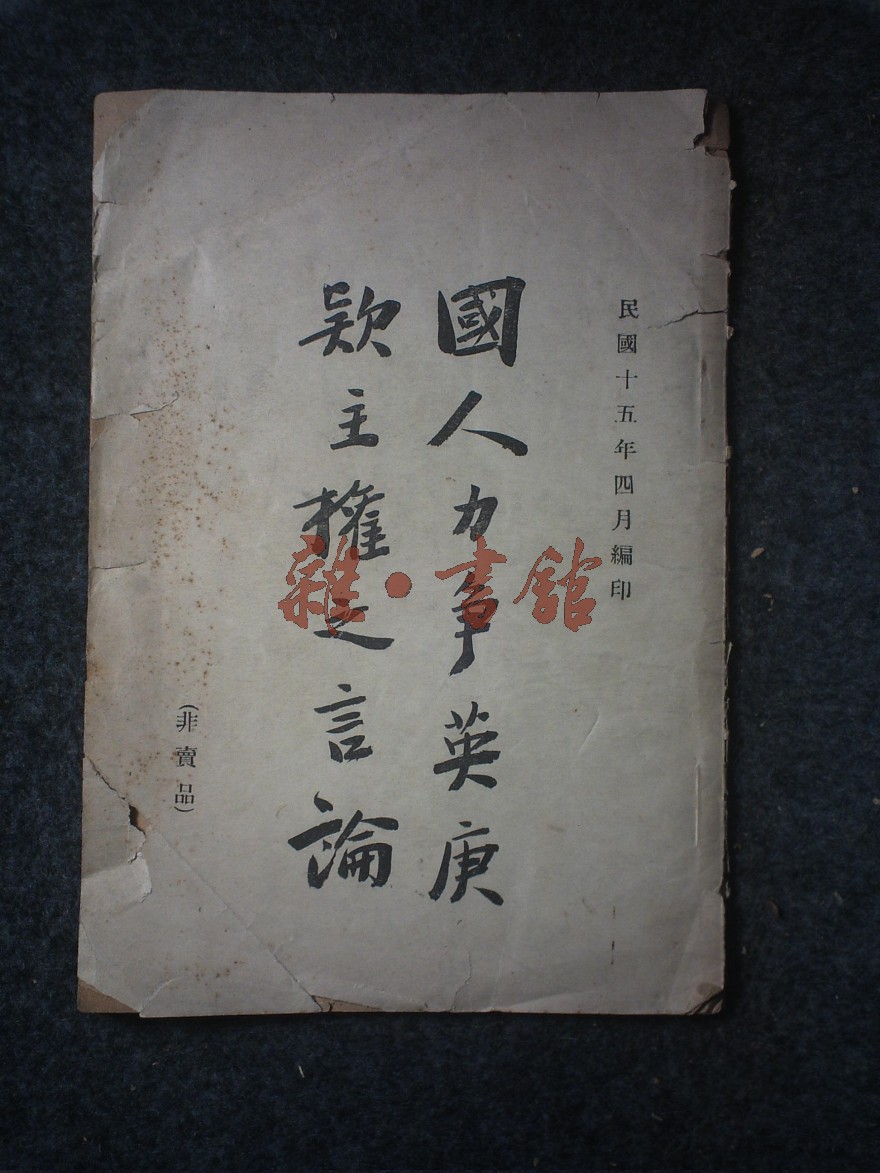 民國十五年四月編印
國人力爭英庚
款主權之言論
(非賣品)
雜·書館